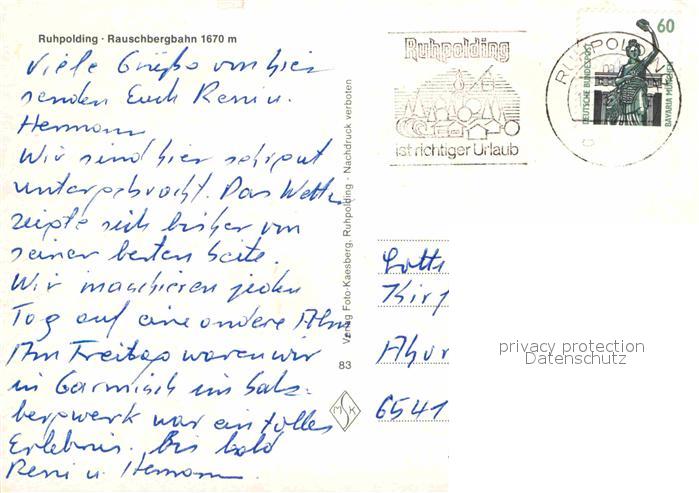 Ruhpolding · Rauschbergbahn 1670 m
Viele Grüße von hier
senden Euch Reni u.
Hermann
Wir sind hier sehr gut
untergebracht. Das Wetter
zeigte sich bisher von
seiner besten Seite.
Wir marschieren jeden
Tag auf eine andere Alm
Am Freitag waren wir
in Garmisch im Salz-
bergwerk war ein tolles
Erlebnis. Bis bald
Reni u. Hermann.
Verlag Foto-Kaesberg, Ruhpolding · Nachdruck verboten
83
M S K
Ruhpolding
ist richtiger Urlaub
RUHPOLDING
60
DEUTSCHE BUNDESPOST
BAVARIA MÜNCHEN
Lotte
6541
privacy protection
Datenschutz